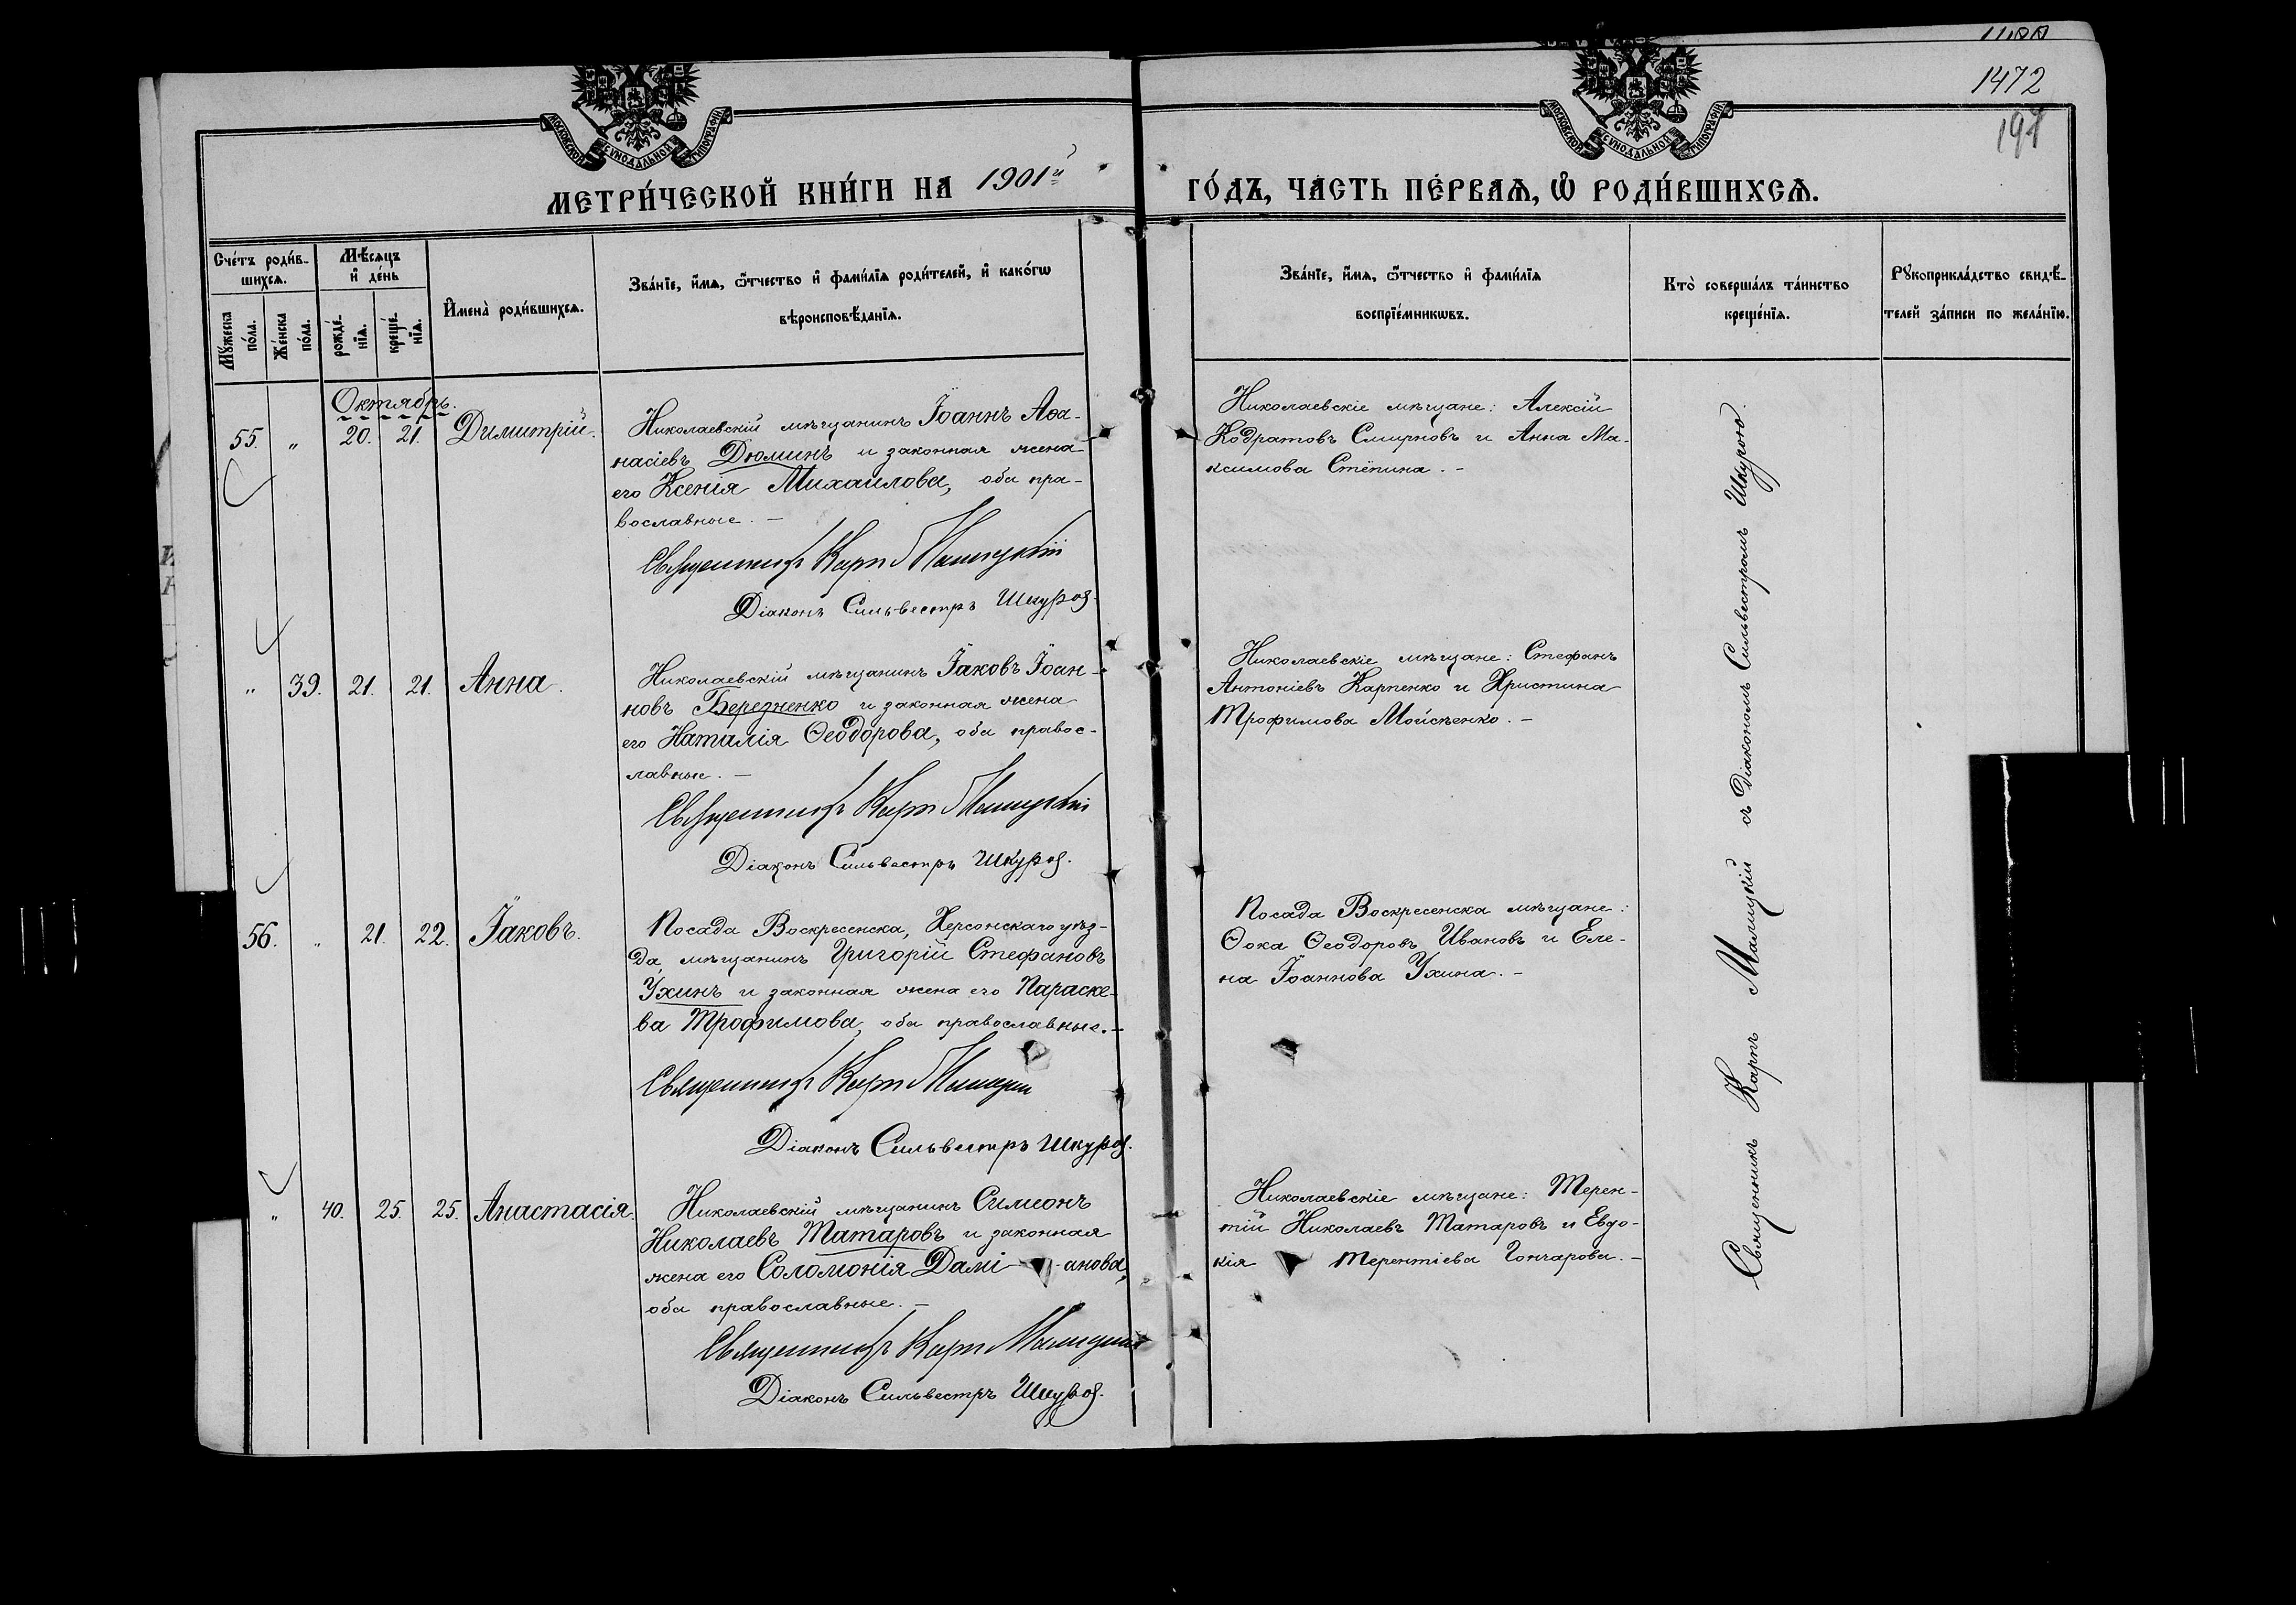 1472
197
МОСКОВСКОЙ СѴНОДАЛЬНОЙ ТИПОГРАФІИ
МОСКОВСКОЙ СѴНОДАЛЬНОЙ ТИПОГРАФІИ
МЕТРИ́ЧЕСКОЙ КНИ́ГИ НА 1901й
ГО́ДЪ, ЧА́СТЬ ПЕ́РВАѦ, Ѽ РОДИ́ВШИХСѦ.
Сче́тъ роди́в-
шихсѧ.
Мꙋжеска по́ла.
Же́нска по́ла.
Мѣ́сѧцъ и де́нь
рожде́-
нїѧ.
креще́-
нїѧ.
Имена̀ роди́вшихсѧ.
Зва́нїе, и́мѧ, ѻ́тчество и фами́лїѧ роди́телей, и како́гѡ
вѣроисповѣ́данїѧ.
Зва́нїе, и́мѧ, ѻ́тчество и фами́лїѧ
воспрїе́мникѡвъ.
Кто̀ соверша́лъ та́инство
креще́нїѧ.
Рꙋкоприкла́дство свидѣ́-
телей за́писи по жела́нїю.
Октябрь.
55. " 20. 21. Димитрій.
Николаевскій мѣщанинъ Іоаннъ Аѳа-
насіевъ Дюминъ и законная жена
его Ксенія Михаилова, оба пра-
вославные. —
Священникъ Карп Малицкій
Діаконъ Сильвестръ Шкуров.
Николаевскіе мѣщане: Алексій
Кодратовъ Смирновъ и Анна Ма-
ксимова Стёпина. —
" 39. 21. 21. Анна.
Николаевскій мѣщанинъ Іаковъ Іоан-
новъ Березненко и законная жена
его Наталія Ѳеодорова, оба правос-
лавные. —
Священникъ Карп Малицкій
Діаконъ Сильвестръ Шкуров.
Николаевскіе мѣщане: Стефанъ
Антоніевъ Карпенко и Христина
Трофимова Мойсѣенко. —
56. " 21. 22. Іаковъ.
Посада Воскресенска, Херсонскаго уѣз-
да, мѣщанинъ Григорій Стефановъ
Ухинъ и законная жена его Параске-
ва Трофимова, оба православные. —
Священникъ Карп Малицкій
Діаконъ Сильвестръ Шкуров.
Посада Воскресенска мѣщане:
Ѳока Ѳеодоровъ Ивановъ и Еле-
на Іоаннова Ухина. —
" 40. 25. 25. Анастасія.
Николаевскій мѣщанинъ Симеонъ
Николаевъ Татаровъ и законная
жена его Соломонія Дамі-анова,
оба православные. —
Священникъ Карп Малицкій
Діаконъ Сильвестръ Шкуров.
Николаевскіе мѣщане: Терен-
тій Николаевъ Татаровъ и Евдо-
кія Терентіева Гончарова. —
Священникъ Карпъ Малицкій съ Діакономъ Сильвестромъ Шкурою.